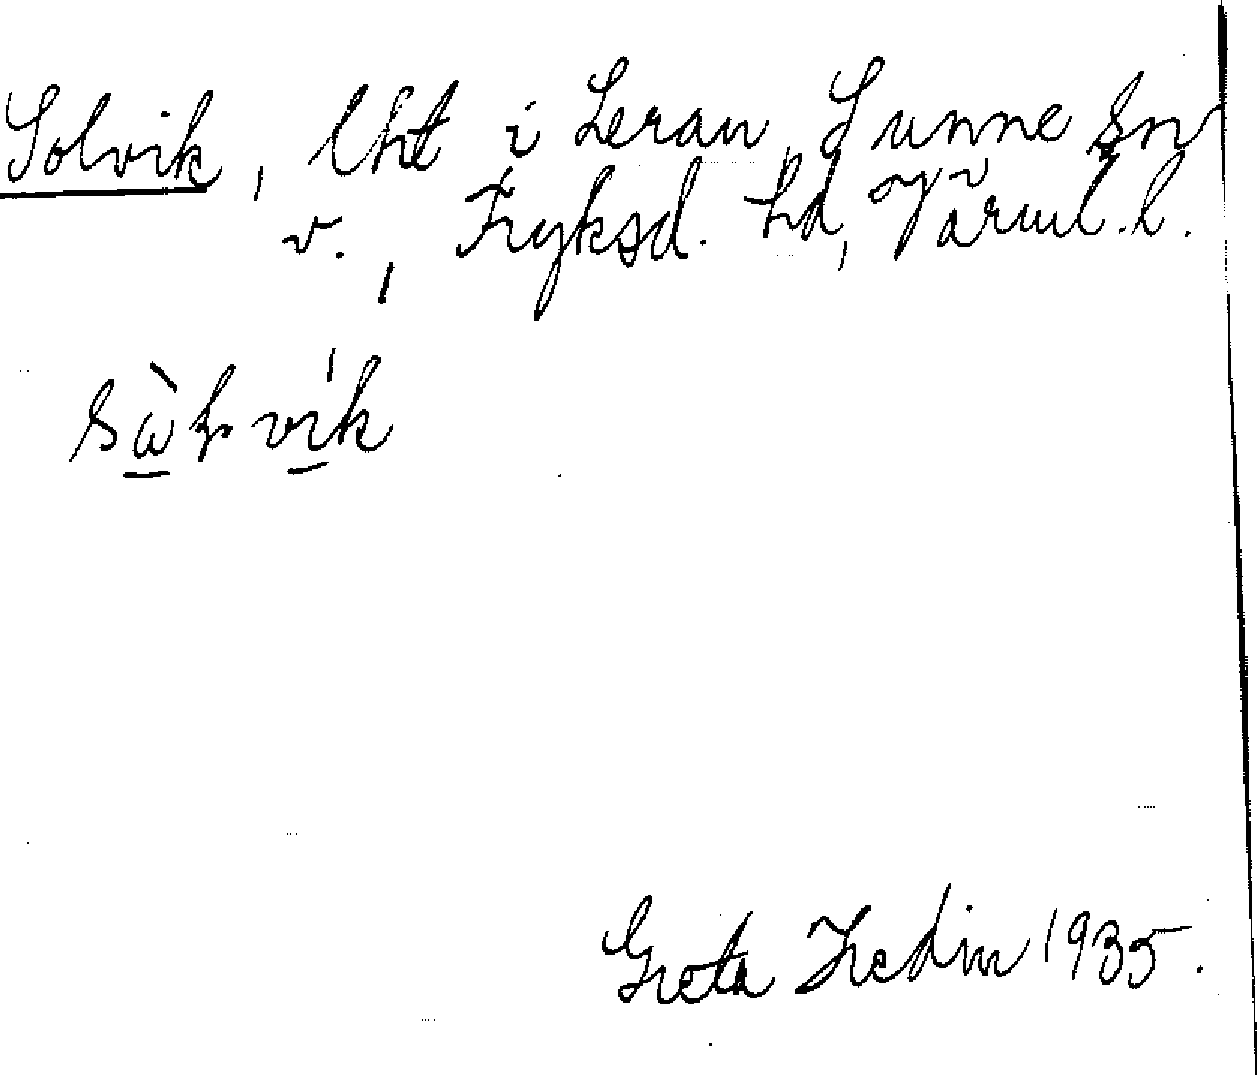 Solvik, lht i Leran, Sunne sn
v., Fryksd. hd, Värml. l.
sὼḷvik
Greta Hedin 1935.